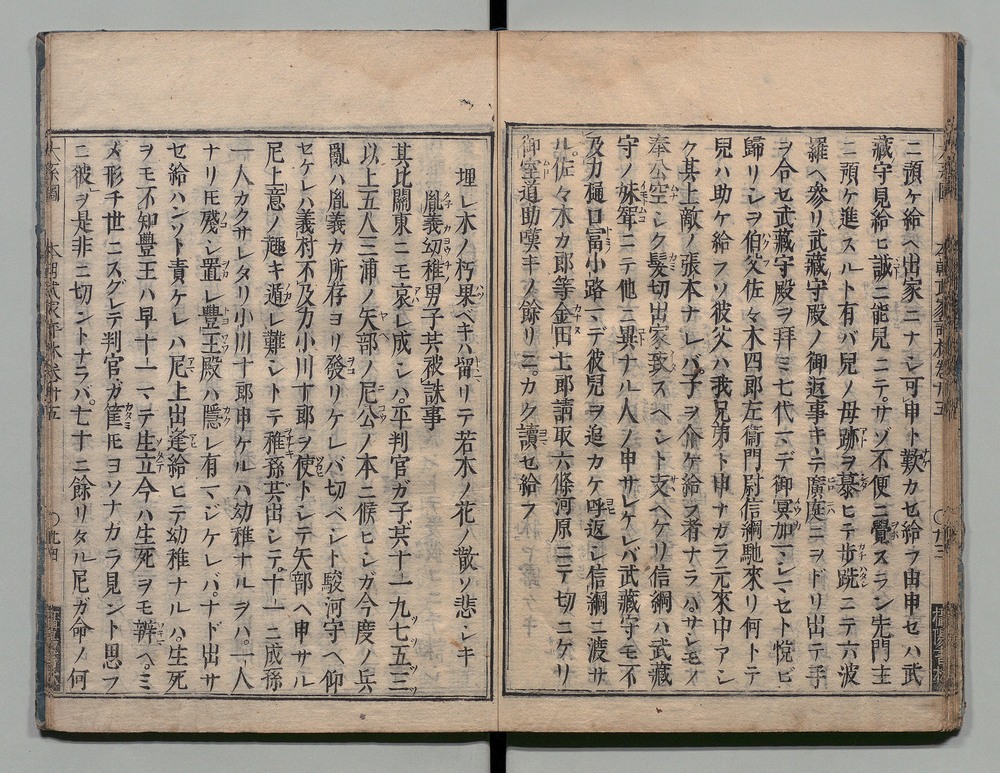 ニ預ケ給ヘ出家ニナシ可申ト歎カセ給フ由申セハ武
藏守見給ヒ誠ニ能兒ニテサゾ不便ニ覺スラン先門主
ニ預ケ進スルト有バ兒ノ母跡ヲ慕ヒテ歩跣ニテ六波
羅ヘ參リ武藏守殿ノ御返事キヽテ廣庭ニヲドリ出テ手
ヲ合セ武藏守殿ヲ拜ミ七代マデ御冥加マシマセト悅ビ
歸リシヲ伯父佐々木四郎左衞門尉信綱馳來リ何トテ
兒ハ助ケ給フソ彼父ハ我兄弟ト申ナガラ元來中アシ
ク其上敵ノ張本ナレバ子ヲ介ケ給フ者ナラハサシモノ
奉公空シク髮切出家致スヘシト支ヘケリ信綱ハ武藏
守ノ妹壻ニテ他ニ異ナル人ノ申サレケレバ武藏守モ不
及力樋口冨小路マデ彼兒ヲ追カケ呼返シ信綱ニ渡サ
ル佐々木カ郎等金田七郎請取六條河原ニテ切ニケリ
御室道助嘆キノ餘リニカク讀セ給フ
埋レ木ノ朽果ベキハ留リテ若木ノ花ノ散ソ悲シキ
胤義幼稚男子其被誅事
其比關東ニモ哀レ成シハ平判官ガ子其十一九七五三
以上五人三浦ノ矢部ノ尼公ノ本ニ候ヒシガ今度ノ兵
亂ハ胤義カ所存ヨリ發リケレバ切ベシト駿河守ヘ仰
セケレハ義村不及力小川十郎ヲ使トシテ矢部ヘ申サル
尼上意ノ趣キ遁レ難シトテ稚孫其出シテ十一ニ成孫
一人カクサレタリ小川十郎申ケルハ幼稚ナルヲハ一人
ナリモ殘シ置レ豐王殿ハ隱レ有マジケレバナド出サ
セ給ハンソト責ケレハ尼上出逢給ヒテ幼稚ナルハ生死
ヲモ不知豐王ハ早十一マテ生立今ハ生死ヲモ辨ヘミ
メ形チ世ニスグレテ判官ガ筐モヨソナガラ見ント思フ
ニ彼ヲ是非ニ切ントナラバ七十ニ餘リタル尼ガ命ノ何